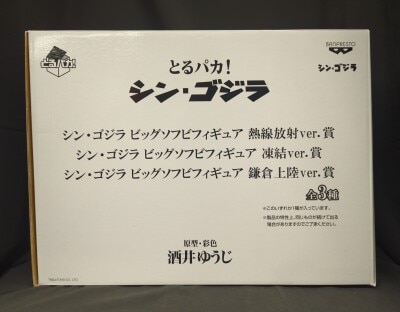 とるパカ!
BANPRESTO
シン・ゴジラ
とるパカ!
シン・ゴジラ
シン・ゴジラ ビッグソフビフィギュア 熱線放射ver.賞
シン・ゴジラ ビッグソフビフィギュア 凍結ver.賞
シン・ゴジラ ビッグソフビフィギュア 鎌倉上陸ver.賞
全3種
※このいずれか1種が入っています。
※製品の特性上、同じものが続けて出る
場合がありますのでご了承ください。
原型・彩色
酒井ゆうじ